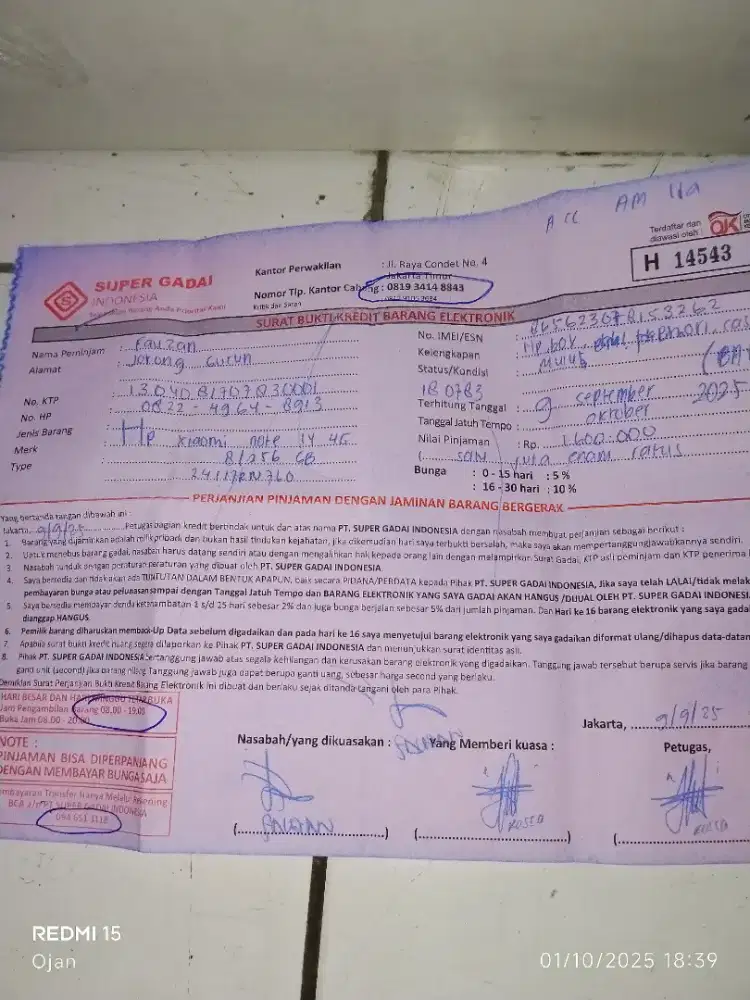 ACC AM Ila
Terdaftar dan
diawasi oleh:
H 14543
SUPER GADAI
INDONESIA
Kantor Perwakilan : Jl. Raya Condet No. 4
Jakarta Timur
Nomor Tlp. Kantor Cabang : 0819 3414 8843
Kritik dan Saran
SURAT BUKTI KREDIT BARANG ELEKTRONIK
Nama Peminjam : Fauzan
Alamat : Jorong Gurun
No. KTP : 1304081707030001
No. HP : 0822-4964-8913
Jenis Barang : Hp Xiaomi note 14 4G
Merk : 8/256 GB
Type 24117RN76O
No. IMEI/ESN : 865623078153262
Kelengkapan : Hp box
Status/Kondisi Mulus
180783
Terhitung Tanggal : 9 September 2025
Tanggal Jatuh Tempo : oktober
Nilai Pinjaman : Rp. 1.600.000
( satu juta enam ratus
Bunga : 0 - 15 hari : 5 %
: 16 - 30 hari : 10 %
PERJANJIAN PINJAMAN DENGAN JAMINAN BARANG BERGERAK
Yang bertanda tangan dibawah ini :
Jakarta, 9/9/25 Petugas bagian kredit bertindak untuk dan atas nama PT. SUPER GADAI INDONESIA dengan nasabah membuat perjanjian sebagai berikut :
1. Barang yang dijaminkan adalah milik pribadi dan bukan hasil tindakan kejahatan, jika dikemudian hari saya terbukti bersalah, maka saya akan mempertanggungjawabkannya sendiri.
2. Untuk menebus barang gadai, nasabah harus datang sendiri atau dengan mengalihkan hak kepada orang lain dengan melampirkan Surat Gadai, KTP asli peminjam dan KTP penerima
3. Nasabah tunduk dengan peraturan-peraturan yang dibuat oleh PT. SUPER GADAI INDONESIA
4. Saya bersedia dan tidak akan ada TUNTUTAN DALAM BENTUK APAPUN, baik secara PIDANA/PERDATA kepada Pihak PT. SUPER GADAI INDONESIA, Jika saya telah LALAI/tidak melak
pembayaran bunga atau pelunasan sampai dengan Tanggal Jatuh Tempo dan BARANG ELEKTRONIK YANG SAYA GADAI AKAN HANGUS /DIJUAL OLEH PT. SUPER GADAI INDONESI
5. Saya bersedia membayar denda keterlambatan 1 s/d 15 hari sebesar 2% dan juga bunga berjalan sebesar 5% dari jumlah pinjaman. Dan Hari ke 16 barang elektronik yang saya gadai
dianggap HANGUS.
6. Pemilik barang diharuskan membackUp Data sebelum digadaikan dan pada hari ke 16 saya menyetujui barang elektronik yang saya gadaikan diformat ulang/dihapus data-datan
7. Apabila surat bukti kredit hilang segera dilaporkan ke Pihak PT. SUPER GADAI INDONESIA dan menunjukkan surat identitas asli.
8. Pihak PT. SUPER GADAI INDONESIA bertanggung jawab atas segala kehilangan dan kerusakan barang elektronik yang digadaikan. Tanggung jawab tersebut berupa servis jika barang
ganti unit (second) jika barang hilang. Tanggung jawab juga dapat berupa ganti uang, sebesar harga second yang berlaku.
Demikian Surat Perjanjian Bukti Kredit Barang Elektronik ini dibuat dan berlaku sejak ditanda tangani oleh para Pihak.
HARI BESAR DAN HARI MINGGU TETAP BUKA
Jam Pengambilan Barang 08.00 - 19.00
Buka Jam 08.00 - 20.00
NOTE :
PINJAMAN BISA DIPERPANJANG
DENGAN MEMBAYAR BUNGA SAJA
Pembayaran Transfer Hanya Melalui Rekening
BCA a/n PT SUPER GADAI INDONESIA
094 651 3118
Jakarta, 9/9/25
Nasabah/yang dikuasakan :
Yang Memberi kuasa :
Petugas,
REDMI 15
Ojan
01/10/2025 18:39